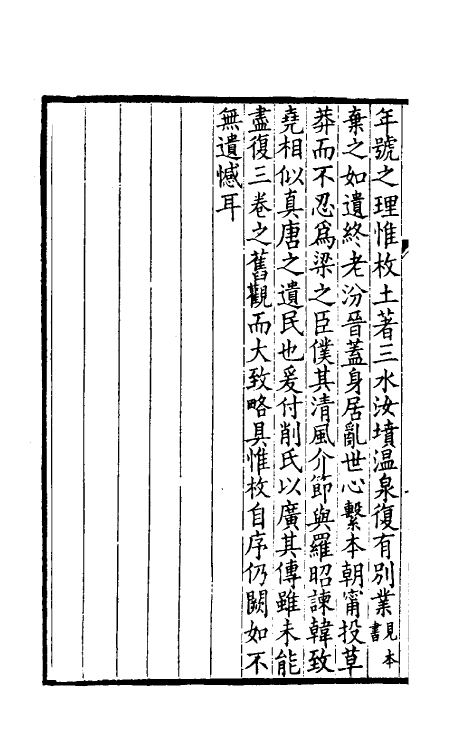 年號之理惟枚土著三水汝墳温泉復有別業見本書
棄之如遺終老汾晉蓋身居亂世心繫本朝甯投草
莽而不忍爲梁之臣僕其清風介節與羅昭諫韓致
堯相似真唐之遺民也爰付削氏以廣其傳雖未能
盡復三卷之舊觀而大致略具惟枚自序仍闕如不
無遺憾耳